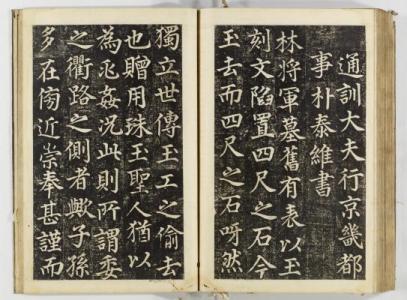 通訓大夫行京畿都
事朴泰維書
林將軍墓舊有表以玉
刻文陷置四尺之石今
玉去而四尺之石呀然
獨立世傳玉工之偷去
也贈用珠玉聖人猶以
為丞姦况此則所謂委
之衢路之側者歟子孫
多在傍近崇奉甚謹而